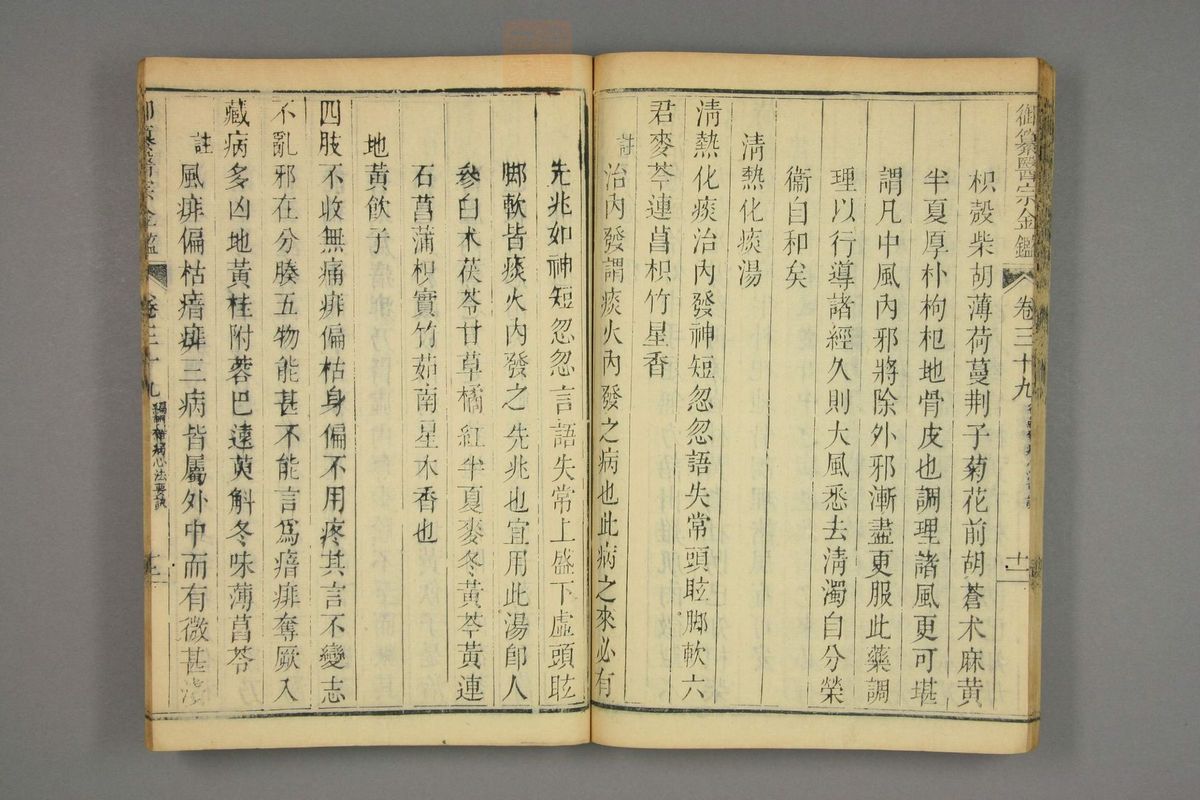 御纂醫宗金鑑 卷三十九
枳殼柴胡薄荷蔓荆子菊花前胡蒼术麻黃
半夏厚朴枸杞地骨皮也調理諸風更可堪
謂凡中風內邪將除外邪漸盡更服此藥調
理以行導諸經久則大風悉去淸濁自分榮
衞自和矣
淸熱化痰湯
淸熱化痰治內發神短忽忽語失常頭眩脚軟六
君麥芩連菖枳竹星香
註 治內發謂痰火內發之病也此病之來必有
先兆如神短忽忽言語失常上盛下虛頭眩
脚軟皆痰火內發之先兆也宜用此湯卽人
參白术茯苓甘草橘紅半夏麥冬黃芩黃連
石菖蒲枳實竹茹南星木香也
地黃飮子
四肢不收無痛痱偏枯身偏不用疼其言不變志
不亂邪在分腠五物能甚不能言爲瘖痱奪厥入
藏病多凶地黃桂附蓉巴遠萸斛冬味薄菖苓
註 風痱偏枯瘖痱三病皆屬外中而有微甚淺
御纂醫宗金鑑 卷三十九 編輯雜病心法要訣